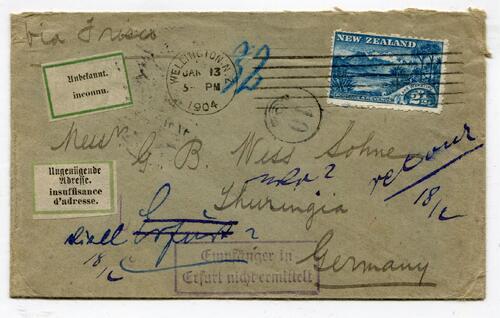 via Frisco
Unbekannt.
inconnu.
WELLINGTON. N.Z
JAN 13
5- PM
1904
32
NEW ZEALAND
2½
10
Ungenügende
Adresse.
insuffisance
d'adresse.
G. B. Weiss Sohne
retour
18/2
Thuringia
Erfurt?
18/2
Germany
Empfänger in
Erfurt nicht ermittelt